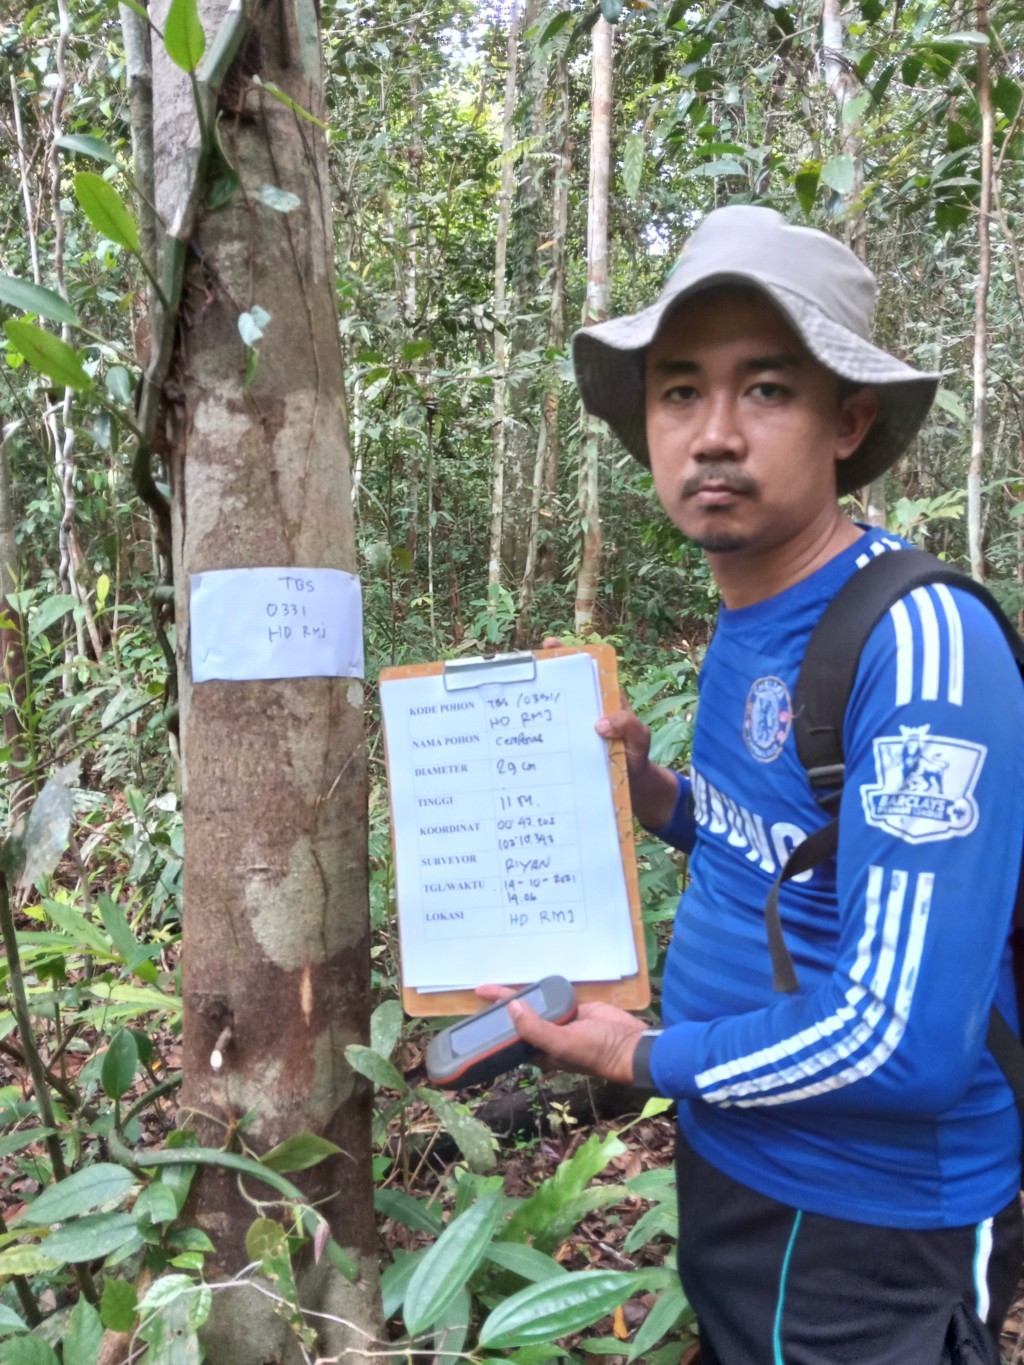 TBS
0331
HD RMJ
KODE POHON TBS /0331/
HD RMJ
NAMA POHON
DIAMETER 29 cm
TINGGI 11 M.
KOORDINAT 00°42.202
SURVEYOR RIYAN
TGL/WAKTU 14-10-2021
14.06
LOKASI HD RMJ
BARCLAYS
PREMIER LEAGUE